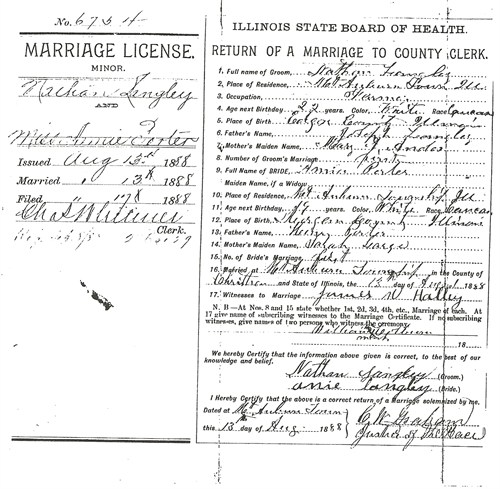 No. 6754
MARRIAGE LICENSE.
MINOR.
Nathan Langley
AND
Miss Annie Porter
Issued Aug 13th 1888
Married " 13th 1888
Filed " 17th 1888
Clerk.
ILLINOIS STATE BOARD OF HEALTH.
RETURN OF A MARRIAGE TO COUNTY CLERK.
1. Full name of Groom, Nathan Langley
2. Place of Residence, Mt Auburn Town Ill
3. Occupation, Farmer
4. Age next Birthday, 22 years Color, White Race,
5. Place of Birth, Edgar County Illinois
6. Father's Name, Joseph Langley
7. Mother's Maiden Name, Mary J.
8. Number of Groom's Marriage, first
9. Full Name of BRIDE, Annie Porter
Maiden Name, if a Widow,
10. Place of Residence, Mt Auburn Township Ill
11. Age next Birthday, years Color, White Race,
12. Place of Birth, County Illinois
13. Father's Name, Henry Porter
14. Mother's Maiden Name, Sarah
15. No. of Bride's Marriage, first
16. Married at Mt Auburn Township in the County of
Christian and State of Illinois, the 13 day of August 1888
17. Witnesses to Marriage James W
N. B—At Nos. 8 and 15 state whether 1st, 2d, 3d, 4th, etc., Marriage of each. At
17 give name of subscribing witnesses to the Marriage Certificate. If no subscribing
witnesses, give names of two persons who witness the ceremony.
William
18
We hereby Certify that the information above given is correct, to the best of our
knowledge and belief.
Nathan Langley (Groom.)
anie Langley (Bride.)
I Hereby Certify that the above is a correct return of a Marriage solemnized by me.
Dated at Mt Auburn Town
this 13th day of Aug. 1888
C. W. Graham
Justice of the Peace